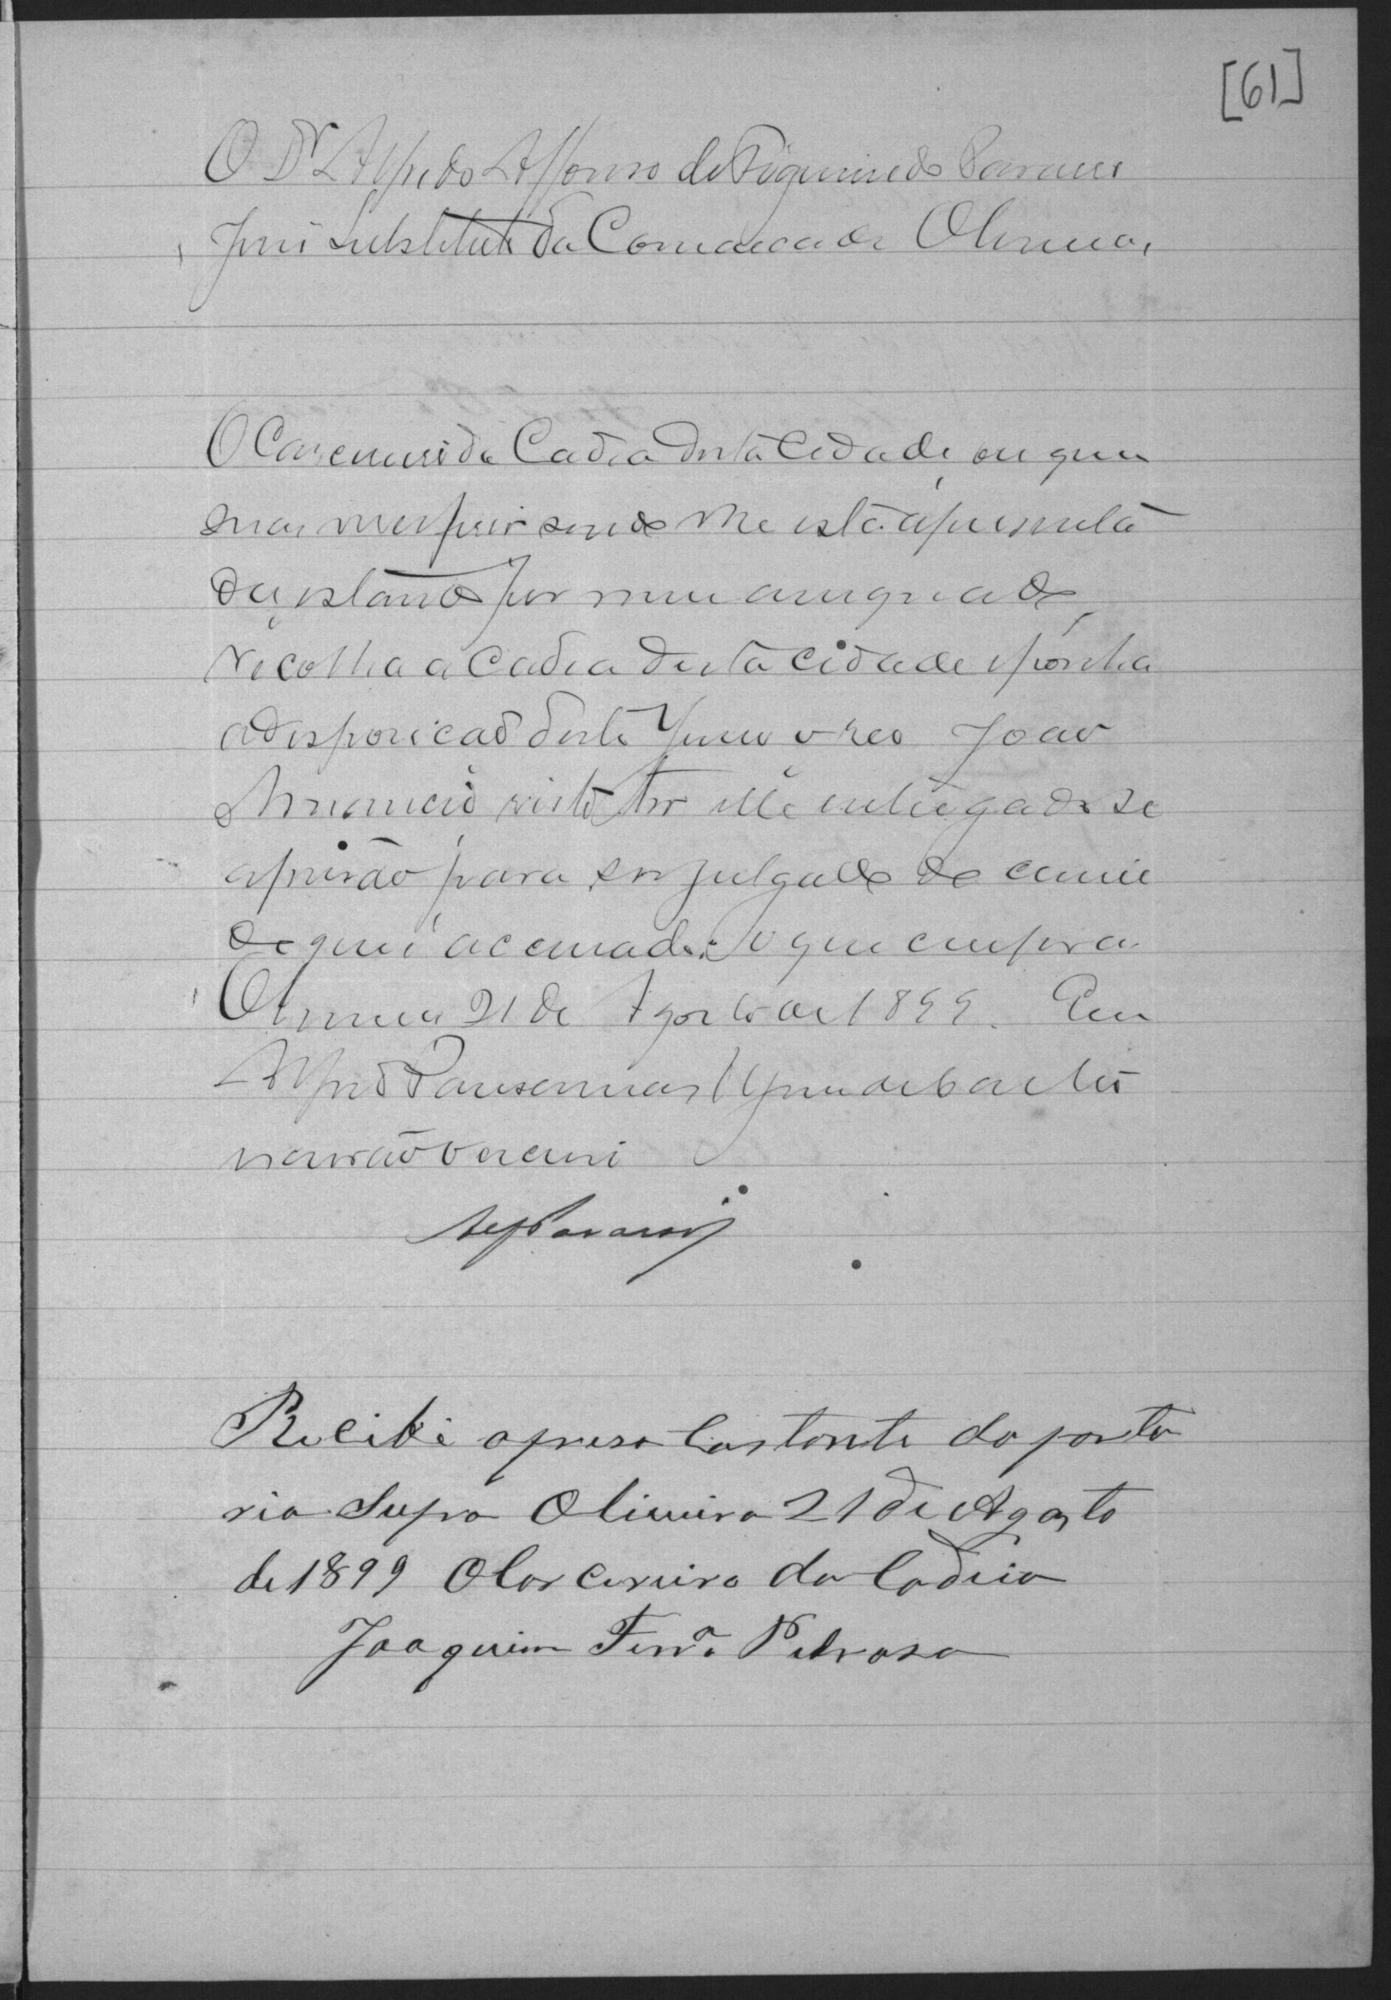 [61]
O Dr Alfredo Affonso de Figueiredo Paranos
Juis Substituto da Comarca de Oliveira,
O Carcereiro da Cadea desta Cidade, ou quem
suas veses fizer sendo lhe esta apresenta
da, estando por mim assignado
recolha a Cadea desta cidade e ponha
a desposicão deste Juizo o reo João
Amancio visto ter elle entregado se
a prisão para ser julgado do crime
de que é accusado. O que cumpra
Oliveira 21 de Agosto de 1899. Eu
Alfredo
escrivão o escrevi
Recibi o preso Constante da porta
ria Supra Oliveira 21 de Agosto
de 1899 O Carcereiro da Cadeia
Joaquim Ferra Pedrosa